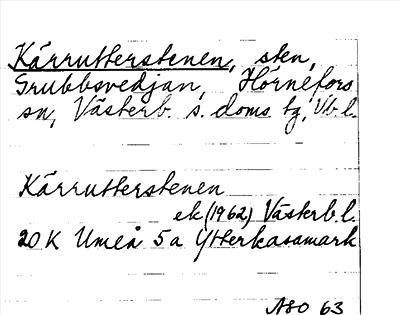 Kärrutterstenen, sten,
Grubbsvedjan, Hörnefors
sn, Västerb. s. doms tg, Vb l.
Kärrutterstenen
ek (1962) Västerb. l.
20 K Umeå 5 a Ytterkasamark
ASO 63